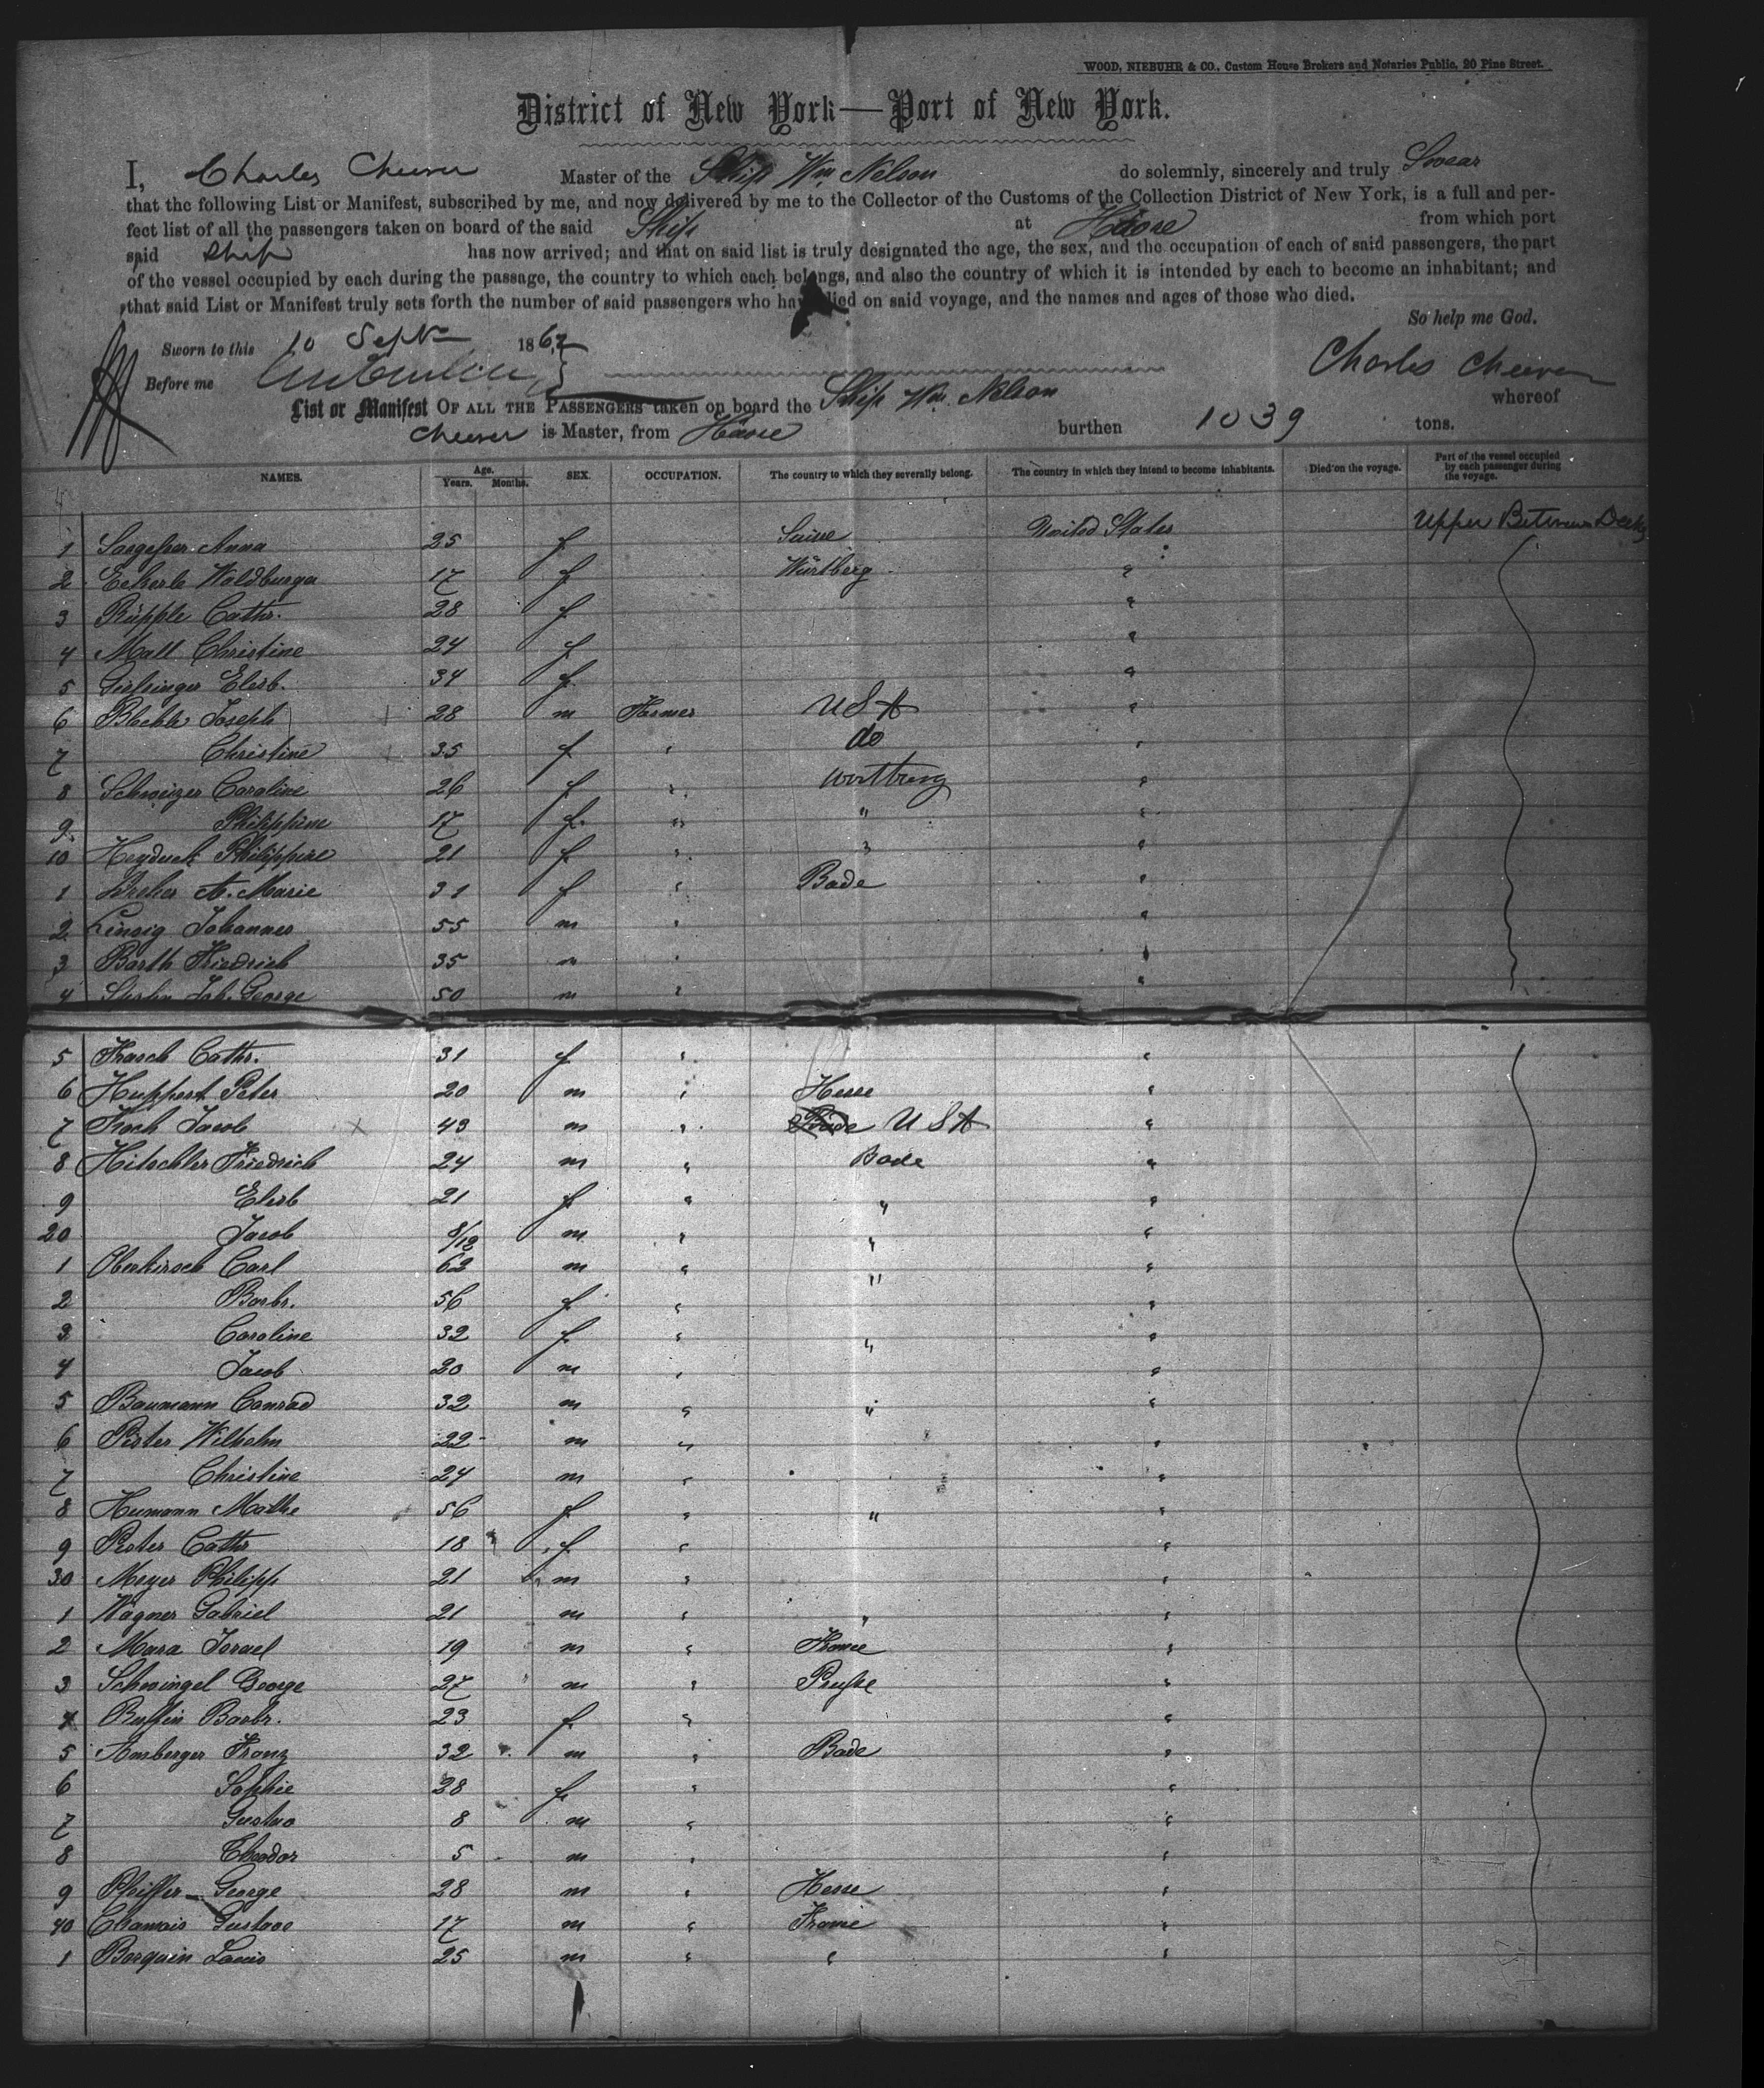 WOOD, NIEBUHR & CO., Custom House Brokers and Notaries Public, 20 Pine Street.
District of New York—Port of New York.
I, Charles Cheever Master of the Ship Wm Nelson do solemnly, sincerely and truly Swear
that the following List or Manifest, subscribed by me, and now delivered by me to the Collector of the Customs of the Collection District of New York, is a full and per-
fect list of all the passengers taken on board of the said Ship at Havre from which port
said Ship has now arrived; and that on said list is truly designated the age, the sex, and the occupation of each of said passengers, the part
of the vessel occupied by each during the passage, the country to which each belongs, and also the country of which it is intended by each to become an inhabitant; and
that said List or Manifest truly sets forth the number of said passengers who have died on said voyage, and the names and ages of those who died.
So help me God.
Sworn to this 10 Septr 1862
Before me
Charles Cheever
List or Manifest OF ALL THE PASSENGERS taken on board the Ship Wm Nelson whereof
Cheever is Master, from Havre burthen 1039 tons.
NAMES. Age. Years. Months. SEX. OCCUPATION. The country to which they severally belong. The country in which they intend to become inhabitants. Died on the voyage. Part of the vessel occupied by each passenger during the voyage.
1 Anna 25 f Suisse United States Upper Between Decks
2 Eckerle Waldburga 17 f Würtberg "
3 Rüpple Cathr. 28 f "
4 Mall Christine 24 f "
5 Elisb. 34 f "
6 Joseph 28 m Farmer USA "
7 Christine 35 f " do "
8 Schweizer Caroline 26 f " Wurtberg "
9 Philippine 17 f " " "
10 Heyduck Philippine 21 f " " "
1 Dreher A. Marie 31 f " Bade "
2 Linsig Johannes 55 m " "
3 Barth Friedrich 35 m " "
4 Joh. George 50 m " "
5 Frasch Cathr. 31 f " "
6 Huppert Peter 20 m " Hesse "
7 Jacob 43 m " Bade USA "
8 Hitschler Friedrich 24 m " Bade "
9 Elisb 21 f " " "
20 Jacob 8/12 m " " "
1 Oberkirsch Carl 62 m " " "
2 Barbr. 56 f " "
3 Caroline 32 f " " "
4 Jacob 20 m " "
5 Baumann Conrad 32 m " " "
6 Pister Wilhelm 22 m " "
7 Christine 24 m " "
8 Humann Mathe 56 f " " "
9 Pister Cathr 18 f " "
30 Meyer Philipp 21 m " "
1 Wagner Gabriel 21 m " " "
2 Marx Israel 19 m " France "
3 Schwingel George 27 m " Prusse "
4 Barbr. 23 f " "
5 Amberger Franz 32 m " Bade "
6 Sophie 28 f " "
7 Gustav 8 m " "
8 Theodor 5 m " "
9 Pfeiffer George 28 m " Hesse "
40 Gustave 17 m " France "
1 Borquin Louis 25 m " " "